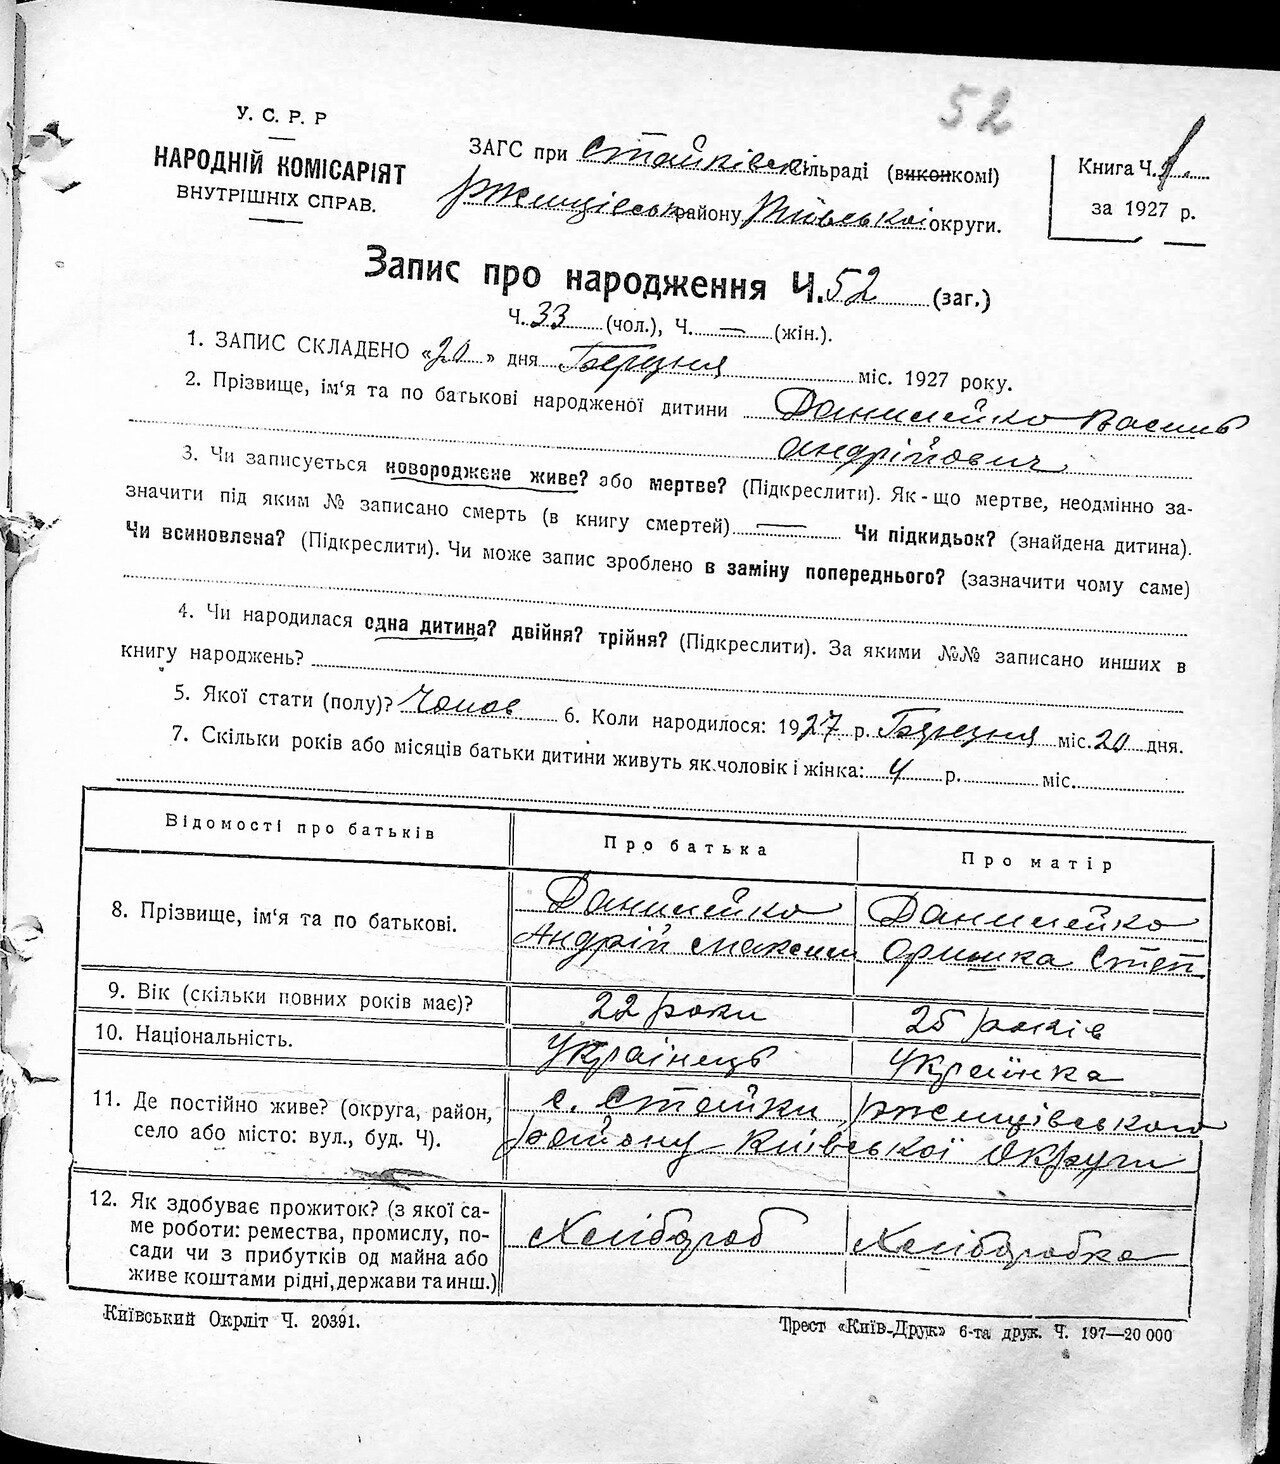 52
У. С. Р. Р
НАРОДНІЙ КОМІСАРІЯТ
ВНУТРІШНІХ СПРАВ.
ЗАГС при Стайківськ сільраді (виконкомі)
Ржищівськ району Київської округи.
Книга Ч. 1.
за 1927 р.
Запис про народження Ч. 52 (заг.)
Ч. 33 (чол.), Ч. — (жін.).
1. ЗАПИС СКЛАДЕНО «20» дня Березня міс. 1927 року.
2. Прізвище, ім'я та по батькові народженої дитини Данилейко Василь
Андрійович
3. Чи записується новороджене живе? або мертве? (Підкреслити). Як-що мертве, неодмінно за-
значити під яким № записано смерть (в книгу смертей) — Чи підкидьок? (знайдена дитина).
Чи всиновлена? (Підкреслити). Чи може запис зроблено в заміну попереднього? (зазначити чому саме)
4. Чи народилася одна дитина? двійня? трійня? (Підкреслити). За якими №№ записано инших в
книгу народжень?
5. Якої стати (полу)? Чолов 6. Коли народилося: 1927 р. Березня міс. 20 дня.
7. Скільки років або місяців батьки дитини живуть як чоловік і жінка: 4 р. міс.
Відомості про батьків Про батька Про матір
8. Прізвище, ім'я та по батькові. Данилейко Данилейко
Андрій Максим Оришка Степ
9. Вік (скільки повних років має)? 22 роки 25 років
10. Національність. Українець Українка
11. Де постійно живе? (округа, район, с. Стайки Ржищівського
село або місто: вул., буд. Ч). району Київської Округи
12. Як здобуває прожиток? (з якої са-
ме роботи: ремества, промислу, по-
сади чи з прибутків од майна або
живе коштами рідні, держави та инш.) Хлібороб Хліборобка
Київський Окрліт Ч. 20391.
Трест «Київ-Друк» 6-та друк. Ч. 197—20 000